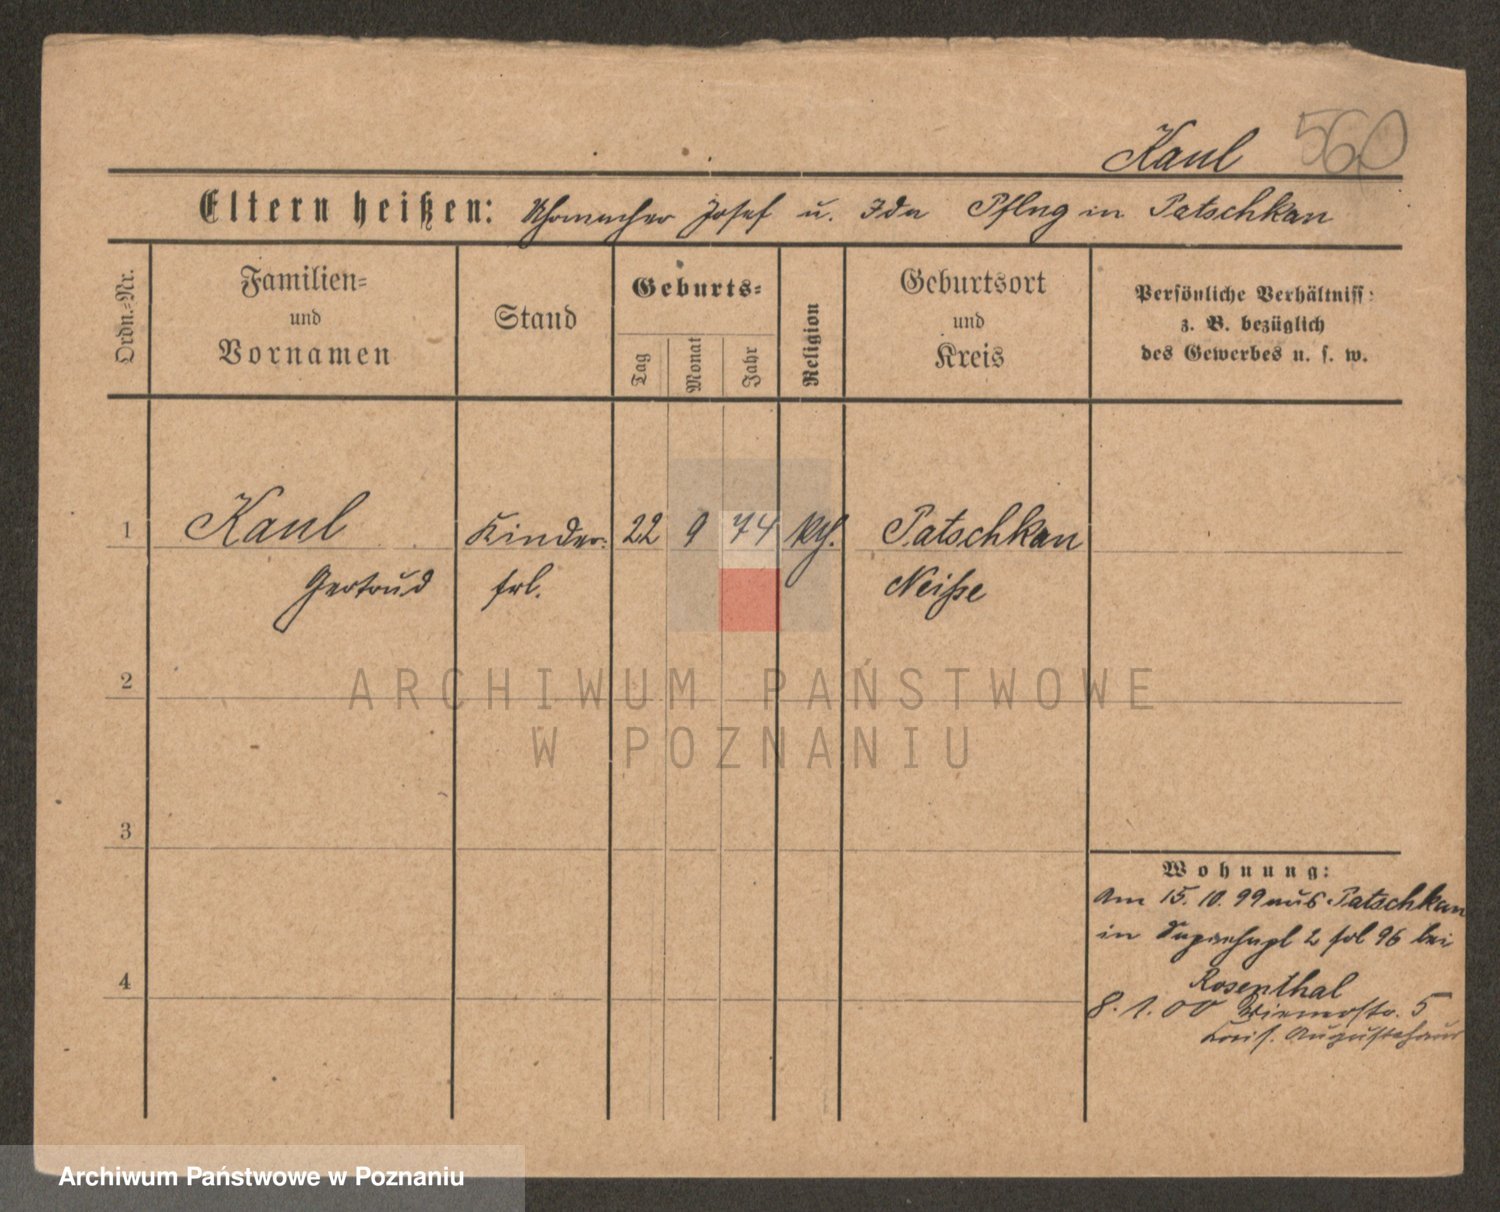 Kaul 560
Eltern heißen: Uhrmacher Josef u. Ida Pflug in Patschkau
Ordn.=Nr.
Familien=
und
Vornamen
Stand
Geburts=
Tag
Monat
Jahr
Religion
Geburtsort
und
Kreis
Persönliche Verhältniss:
z. B. bezüglich
des Gewerbes u. s. w.
1 Kaul Kinder= 22 9 74 kth. Patschkau
Gertrud frl. Neiße
2
ARCHIWUM PAŃSTWOWE
W POZNANIU
3
Wohnung:
Am 15. 10. 99 aus Patschkau
in 2 96 bei
4
Rosenthal
8. 1. 00 5
Augustahaus
Archiwum Państwowe w Poznaniu